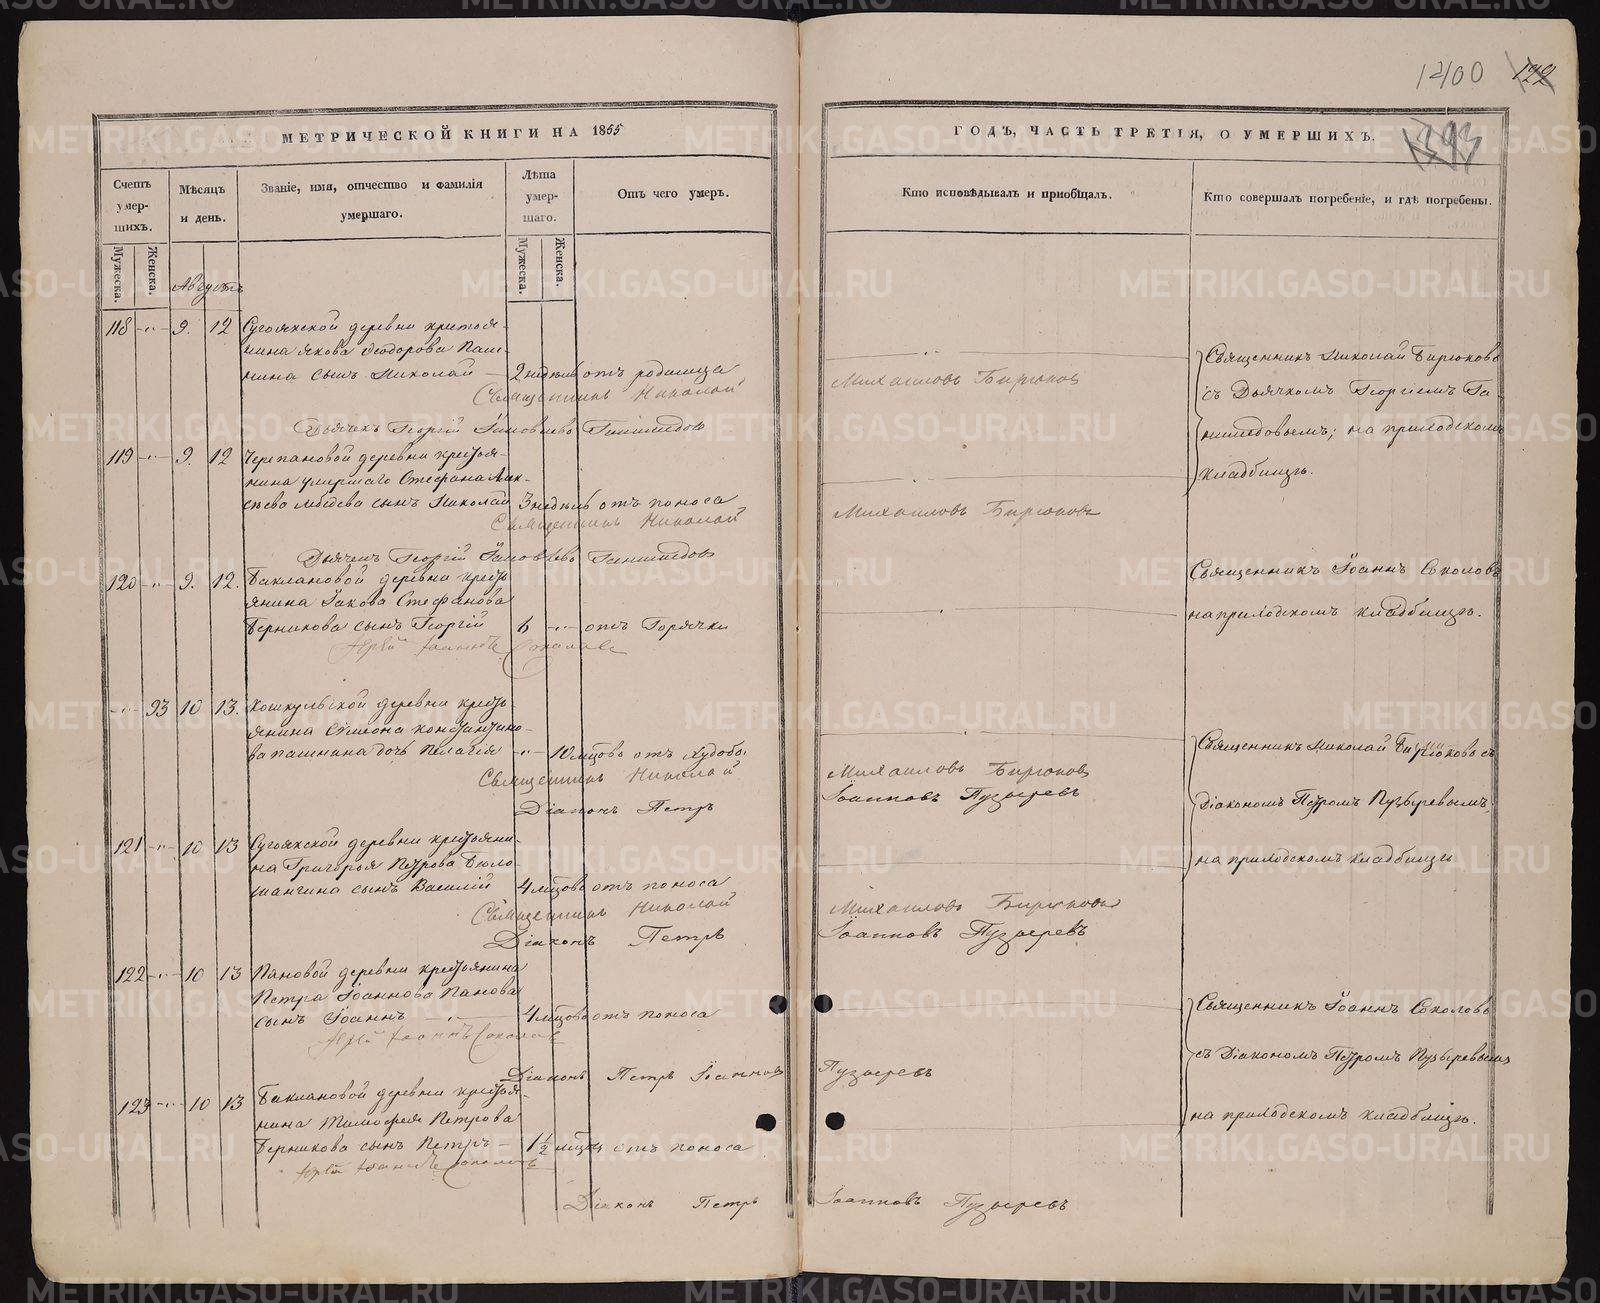 1400 122
1393
МЕТРИЧЕСКОЙ КНИГИ НА 1865
ГОДЪ, ЧАСТЬ ТРЕТІЯ, О УМЕРШИХЪ.
Счетъ умер-шихъ.
Мѣсяцъ и день.
Званіе, имя, отчество и фамилія умершаго.
Лѣта умер-шаго.
Отъ чего умеръ.
Кто исповѣдывалъ и пріобщалъ.
Кто совершалъ погребеніе, и гдѣ погребены.
Мужеска. Женска.
Мужеска. Женска.
Августъ
118 -"- 9. 12 Сугоякской деревни крестоя-
нина Якова Ѳеодорова Паш-
нина сынъ Николай — 2 недѣль отъ родимца
Священникъ Николай Михаиловъ Бирюковъ
Дьячекъ Георгій
Священникъ Николай Бирюковъ
съ Дьячкомъ Георгіемъ
на приходскомъ
кладбищѣ.
119 -"- 9. 12 Черепановой деревни крестья-
нина умершаго Стефана
сынъ Николай 3 недѣль отъ поноса
Священникъ Николай Михаиловъ Бирюковъ
Дьячекъ Георгій
120 -"- 9. 12. Баклановой деревни кресть
янина Іакова Стефанова
Берникова сынъ Георгій 6 -"- отъ Горячки
Іерей Іоаннъ Соколовъ
Священникъ Іоаннъ Соколовъ
на приходскомъ кладбищѣ.
-"- 93 10 13. Кошкульской деревни кресть
янина Сѵмеона Константино-
ва Пашнина дочь Пелагія -"- 10 мѣсцовъ отъ худобы
Священникъ Николай Михаиловъ Бирюковъ
Діаконъ Петръ Іоанновъ Пузыревъ
Священникъ Николай Бирюковъ съ
Діакономъ Петромъ Пузыревымъ,
на приходскомъ кладбищѣ
121 -"- 10 13 Сугоякской деревни крестьяни-
на Григорья Петрова
сынъ Василій 4 мѣсцовъ отъ поноса
Священникъ Николай Михаиловъ Бирюковъ
Діаконъ Петръ Іоанновъ Пузыревъ
122 -"- 10 13 Пановой деревни крестьянина
Петра Іоаннова Панова
сынъ Іоаннъ -"- 4 мѣсцовъ отъ поноса
Іерей Іоаннъ Соколовъ
Діаконъ Петръ Іоанновъ Пузыревъ
Священникъ Іоаннъ Соколовъ
съ Діакономъ Петромъ Пузыревымъ
на приходскомъ кладбищѣ.
123 -"- 10 13 Баклановой деревни крестья-
нина Тимофея Петрова
Берникова сынъ Петръ — 1½ мѣсцъ отъ поноса
Іерей Іоаннъ Соколовъ
Діаконъ Петръ Іоанновъ Пузыревъ
METRIKI.GASO-URAL.RU